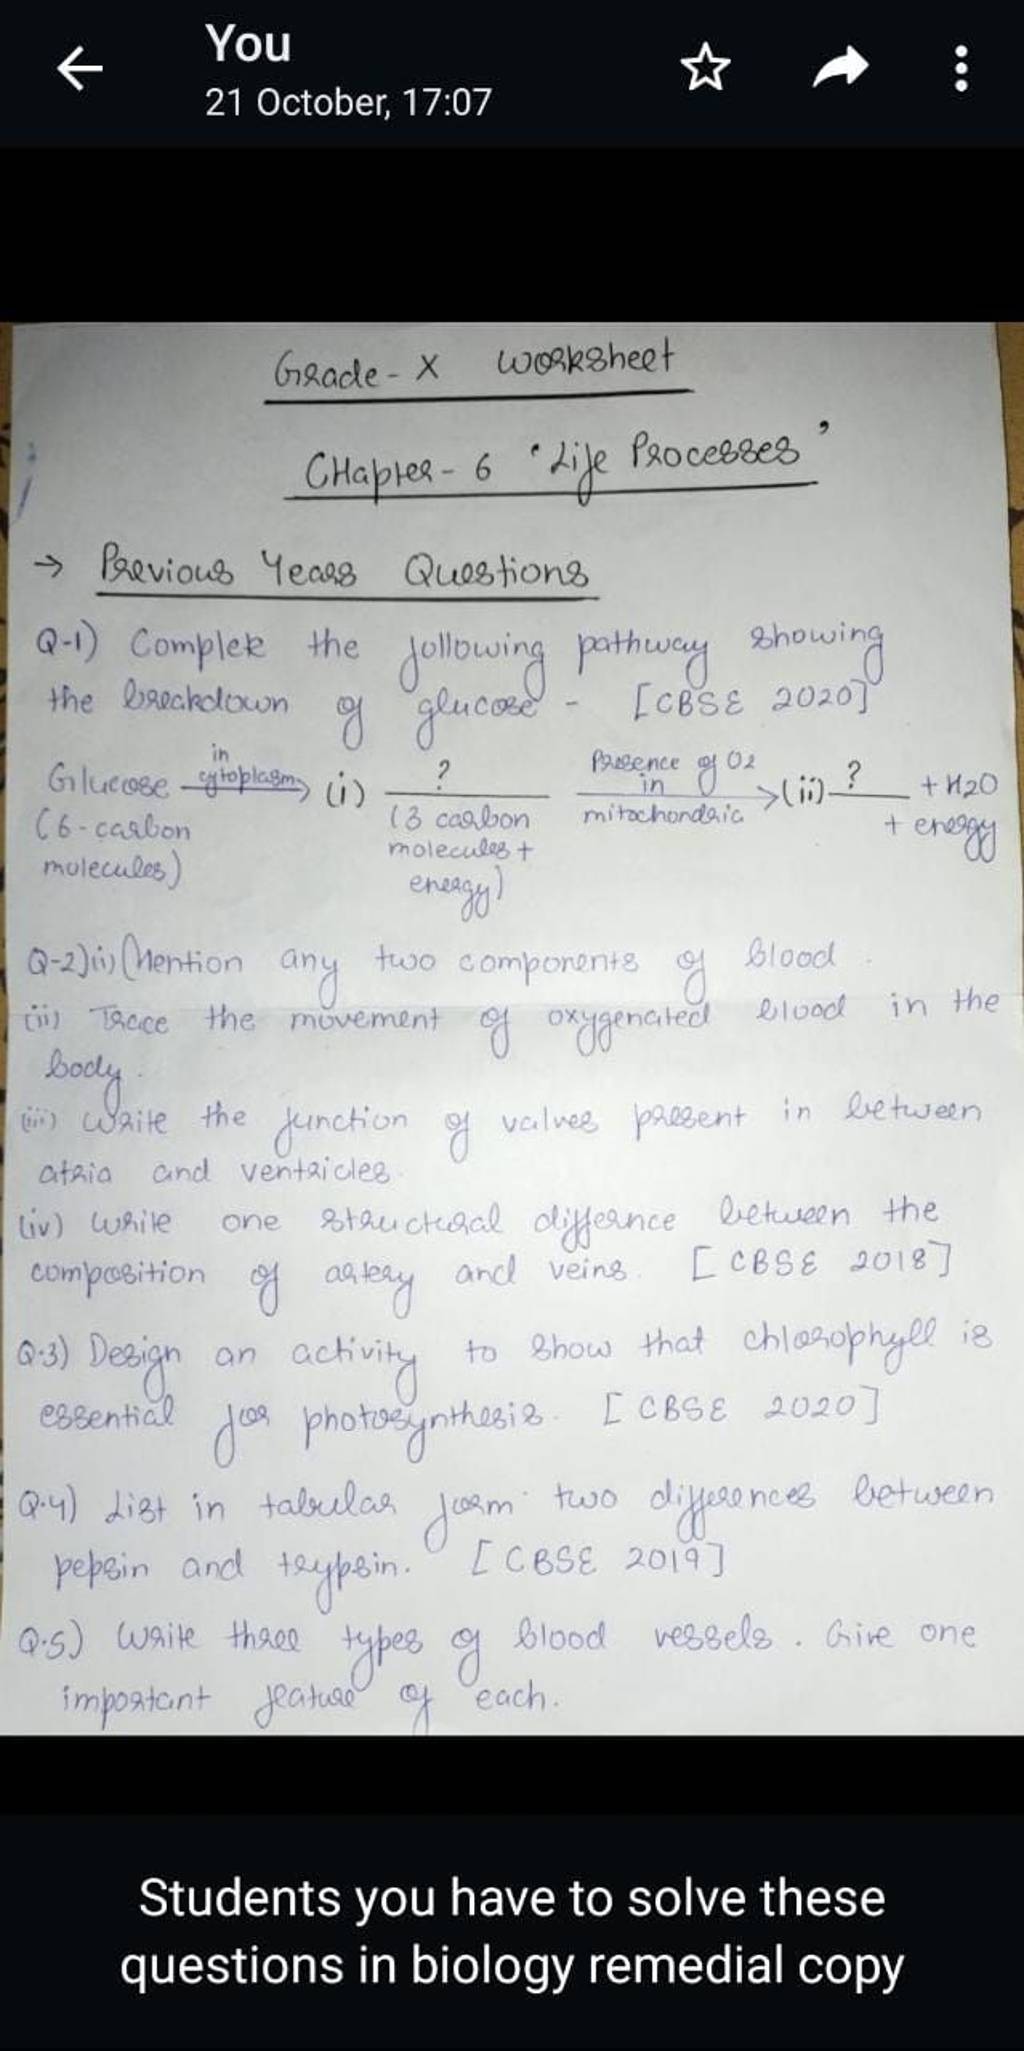 You
21 October, 17:07
Grade - X Worksheet
CHapter - 6 'Life Processes'
→ Previous Years Questions
Q-1) Complete the following pathway showing
the breakdown of glucose - [CBSE 2020]
Glucose in cytoplasm → (i) ? Presence of O2 in mitochondria → (ii) ? + H2O
(6-carbon molecules) (3 carbon molecules + energy) + energy
Q-2)(i) Mention any two components of blood.
(ii) Trace the movement of oxygenated blood in the
body.
(iii) Write the function of valves present in between
atria and ventricles.
(iv) Write one structural differnce between the
composition of artery and veins. [CBSE 2018]
Q.3) Design an activity to show that chlorophyll is
essential for photosynthesis. [CBSE 2020]
Q.4) List in tabular form two differences between
pepsin and trypsin. [CBSE 2019]
Q.5) Write three types of blood vessels. Give one
important feature of each.
Students you have to solve these
questions in biology remedial copy